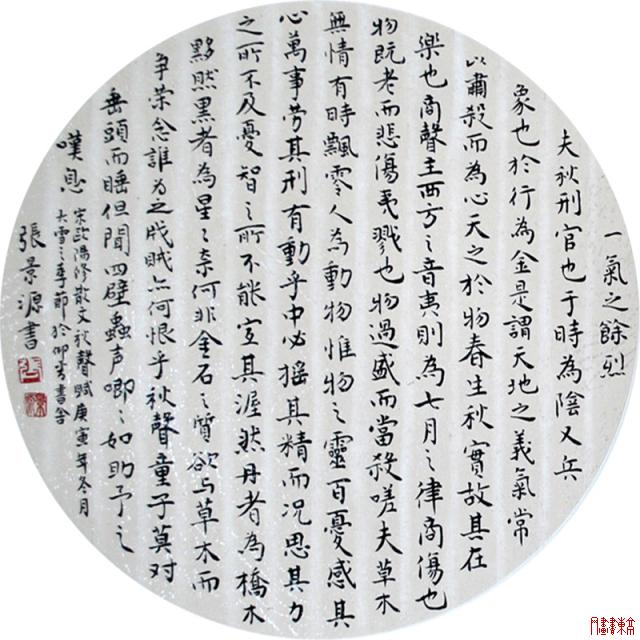 一氣之餘烈
夫秋刑官也于時為陰又兵
象也於行為金是謂天地之義氣常
以肅殺而為心天之於物春生秋實故其在
樂也商聲主西方之音夷則為七月之律商傷也
物既老而悲傷夷戮也物過盛而當殺嗟夫草木
無情有時飄零人為動物惟物之靈百憂感其
心萬事勞其刑有動乎中必搖其精而況思其力
之所不及憂智之所不能宜其渥然丹者為橋木
黟然黑者為星〻奈何非金石之質欲与草木而
争荣念誰为之戕賊亦何恨乎秋聲童子莫对
垂頭而睡但聞四壁蟲声唧〻如助予之
嘆息
宋歐陽修散文秋聲賦庚寅年冬月
大雪之季節於仰 書舍
張景源書